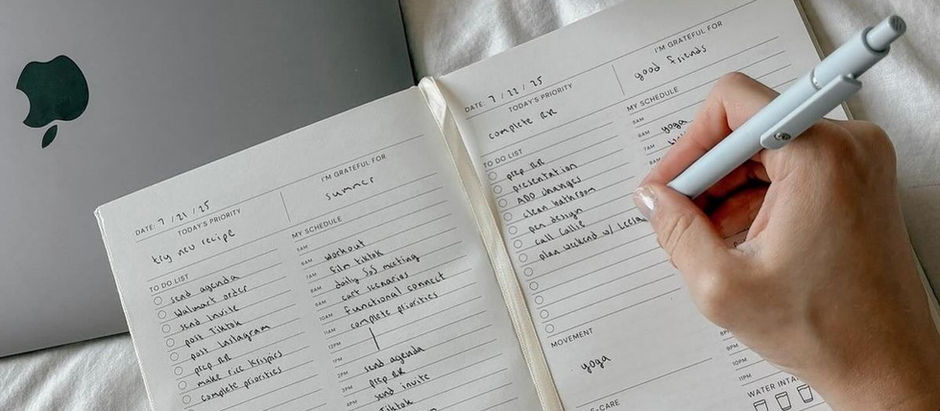 DATE: 7 / 21 / 25
TODAY'S PRIORITY
try new recipe
I'M GRATEFUL FOR
summer
TO DO LIST
send agenda
Walmart order
send invite
post TikTok
post Instagram
prep RR
make rice krispies
complete priorities
MY SCHEDULE
5AM
6AM workout
7AM film tiktok
8AM daily SoS meeting
9AM cart scenarios
10AM functional connect
11AM complete priorities
12PM
1PM
2PM send agenda
3PM prep RR
send invite
TikTok
E-CARE
DATE: 7 / 22 / 25
TODAY'S PRIORITY
complete RR
I'M GRATEFUL FOR
good friends
TO DO LIST
prep RR
presentation
ADO changes
clean bathroom
pen design
call Callie
plan weekend w/
MY SCHEDULE
5AM
6AM yoga
7AM
8AM
MOVEMENT
yoga
9PM
10PM
11PM
WATER INTAK
F-CARE